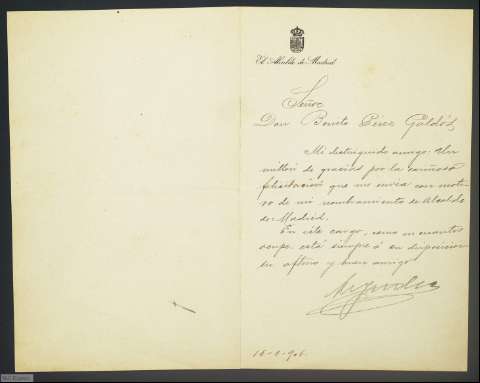 El Alcalde de Madrid
Señor
Don Benito Pérez Galdós
Mi distinguido amigo: Un
millón de gracias por la cariñosa
felicitación que me envia con moti-
vo de mi nombramiento de Alcalde
de Madrid.
En este cargo, como en cuantos
ocupe está siempre á su disposicion
su aftmo y buen amigo